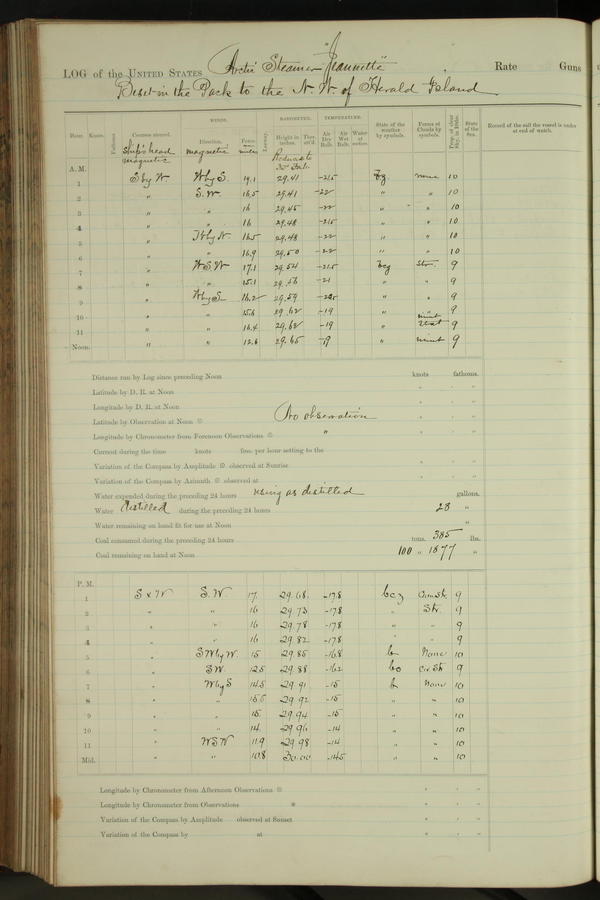 LOG of the UNITED STATES Arctic Steamer "Jeannette" Rate Guns
Beset in the Pack to the N. W. of Herald Island
WINDS. BAROMETER. TEMPERATURE.
Hour. Knots. Fathoms. Courses steered. Direction. Force. Leeway. Height in inches. Ther. att'd. Air Dry Bulb. Air Wet Bulb. Water at surface. State of the weather by symbols. Forms of Clouds by symbols. Prop. of clear Sky, in 10ths. State of the Sea. Record of the sail the vessel is under at end of watch.
ship's head magnetic magnetic miles Reduced to 32° Fah.
A. M.
1 S by W W by S. 19.1 29.41 -21.5 bz none 10
2 " S. W. 16.5 29.41 -22 " " 10
3 " " 16 29.45 -22 " " 10
4 " " 16 29.48 -21.5 " " 10
5 " W by N. 16.5 29.48 -22 " " 10
6 " " 16.9 29.50 -22 " " 10
7 " W S W 17.1 29.54 -21.5 bcz Str. 9
8 " " 15.1 29.56 -21 " " 9
9 " W by S 16.2 29.59 " " 9
10 " " 15.6 29.62 -19 " 9
11 " " 16.4 29.62 -19 " 9
Noon. " " 12.6 29.65 -19 " 9
Distance run by Log since preceding Noon knots fathoms.
Latitude by D. R. at Noon " " "
Longitude by D. R. at Noon " " "
Latitude by Observation at Noon ☉ No observation " " "
Longitude by Chronometer from Forenoon Observations ☉ " " " "
Current during the time knots fms. per hour setting to the
Variation of the Compass by Amplitude ☉ observed at Sunrise " " "
Variation of the Compass by Azimuth ☉ observed at " " "
Water expended during the preceding 24 hours using as distilled gallons.
Water distilled during the preceding 24 hours 28 "
Water remaining on hand fit for use at Noon "
Coal consumed during the preceding 24 hours tons. 385 lbs.
Coal remaining on hand at Noon 100 " 1877 "
P. M.
1 S x W S. W. 17. 29.68. -17.8 bcz 9
2 " " 16 29.73 -17.8 " Str. 9
3 " " 16 29.78 -17.8 " " 9
4 " " 16 29.82 -17.8 " " 9
5 " S W by W. 15 29.85 -16.8 b None 10
6 " S W. 12.5 29.88 -16.2 bc Cir. St. 9
7 " W by S 14.5 29.91 -15 b None 10
8 " " 29.92 -15 " " 10
9 " " 15. 29.94 -15 " " 10
10 " " 14. 29.96 -14 " " 10
11 " W S W 11.9 29.98 -14 " " 10
Mid. " " 10.8 30.00 -14.5 " " 10
Longitude by Chronometer from Afternoon Observations ☉ " " "
Longitude by Chronometer from Observations * " " "
Variation of the Compass by Amplitude observed at Sunset " " "
Variation of the Compass by at " " "